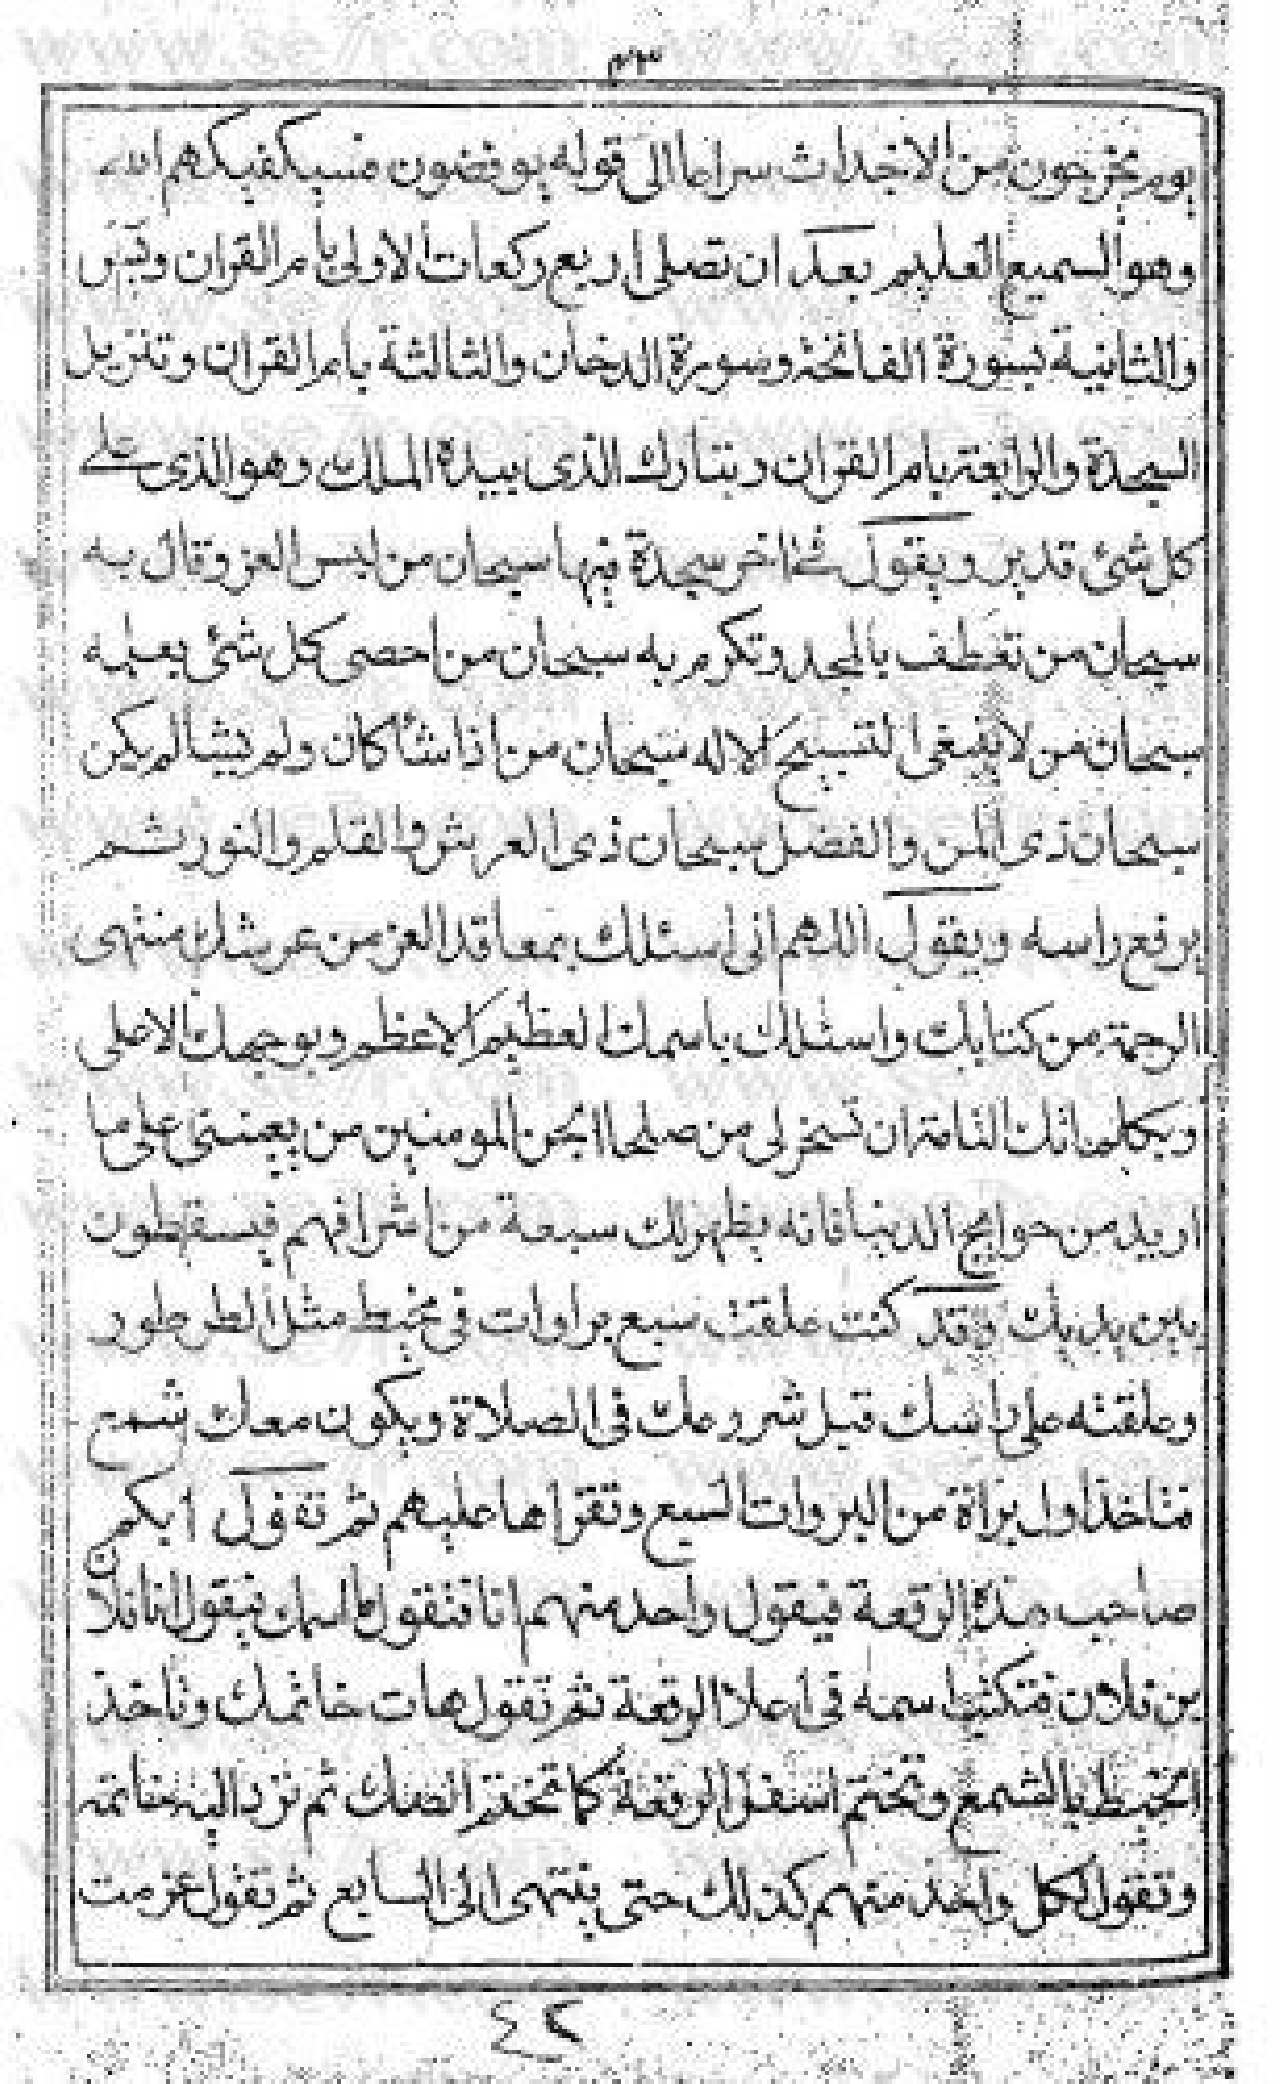 ٤٣
يوم يخرجون من الاجداث سراعا الى قوله يوفضون فسيكفيكهم الله
وهو السميع العليم بعد ان تصلى اربع ركعات الاولى بام القران ويس
والثانية بسورة الفاتحة وسورة الدخان والثالثة بام القران وتنزيل
السجدة والرابعة بام القران وتبارك الذى بيده الملك وهو الذى على
كل شئ قدير ويقول فى اخر سجدة فيها سبحان من لبس العز وقال به
سبحان من تعطف بالمجد وتكرم به سبحان من احصى كل شئ بعلمه
سبحان من لا ينبغى التسبيح الا له سبحان من اذا شأ كان ولم يشا لم يكن
سبحان ذى المن والفضل سبحان ذى العرش والقلم والنور ثم
يرفع راسه ويقول اللهم انى اسئلك بمعاقد العز من عرشك منتهى
الرحمة من كتابك واسئلك باسمك العظيم الاعظم وبوجهك الاعلى
وبكلماتك التامة ان تسخر لى من صلحا الجن المومنين من يعيننى على ما
اريد من حوايج الدنيا فانه يظهر لك سبعة من اشرافهم فيسقطون
بين يديك وقد كنت علقت سبع براوات فى مخيط مثل الطرطور
وعلقته على راسك قبل شروعك فى الصلاة ويكون معك شمع
فتاخذ اول براة من البروات السبع وتقراها عليهم ثم تقول ايكم
صاحب هذه الرقعة فيقول واحد منهم انا فتقول ما اسمك فيقول انا فلان
بن فلان فتكتب اسمه فى اعلا الرقعة ثم تقول هات خاتمك وتاخذ
الخيط بالشمع وتختم اسفل الرقعة كما تختم الصك ثم ترد اليه خاتمه
وتقول لكل واحد منهم كذلك حتى ينتهى الى السابع ثم تقول عزمت
٤٢
www.se7r.com www.se7r.com